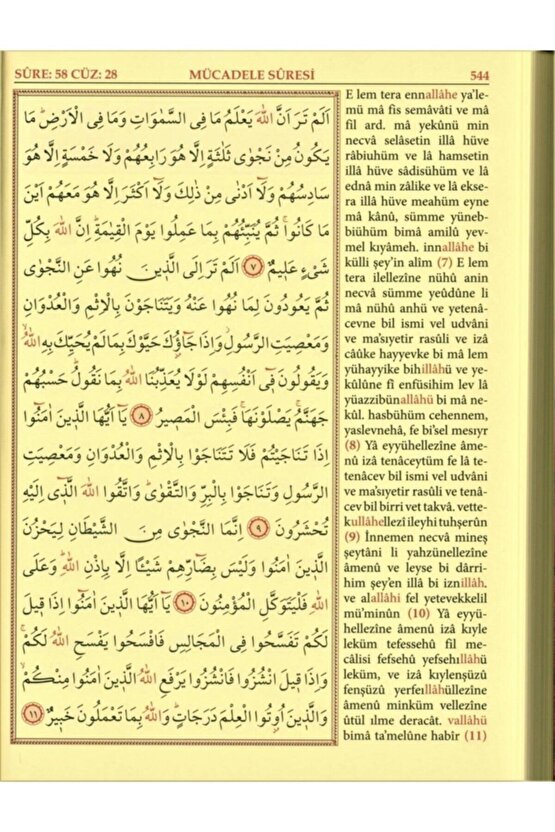 SÛRE: 58 CÜZ: 28 MÜCADELE SÛRESİ 544
اَلَمْ تَرَ اَنَّ اللهَ يَعْلَمُ مَا فِي السَّمٰوَاتِ وَمَا فِي الْاَرْضِ مَا
يَكُونُ مِنْ نَجْوٰى ثَلٰثَةٍ اِلَّا هُوَ رَابِعُهُمْ وَلَا خَمْسَةٍ اِلَّا هُوَ
سَادِسُهُمْ وَلَٓا اَدْنٰى مِنْ ذٰلِكَ وَلَٓا اَكْثَرَ اِلَّا هُوَ مَعَهُمْ اَيْنَ
مَا كَانُوا ثُمَّ يُنَبِّئُهُمْ بِمَا عَمِلُوا يَوْمَ الْقِيٰمَةِ اِنَّ اللهَ بِكُلِّ
شَيْءٍ عَلِيمٌ ﴿٧﴾ اَلَمْ تَرَ اِلَى الَّذِينَ نُهُوا عَنِ النَّجْوٰى
ثُمَّ يَعُودُونَ لِمَا نُهُوا عَنْهُ وَيَتَنَاجَوْنَ بِالْاِثْمِ وَالْعُدْوَانِ
وَمَعْصِيَتِ الرَّسُولِ وَاِذَا جَٓاؤُ۫كَ حَيَّوْكَ بِمَا لَمْ يُحَيِّكَ بِهِ اللهُ
وَيَقُولُونَ فِٓي اَنْفُسِهِمْ لَوْلَا يُعَذِّبُنَا اللهُ بِمَا نَقُولُ حَسْبُهُمْ
جَهَنَّمُ يَصْلَوْنَهَا فَبِئْسَ الْمَصِيرُ ﴿٨﴾ يَٓا اَيُّهَا الَّذِينَ اٰمَنُٓوا
اِذَا تَنَاجَيْتُمْ فَلَا تَتَنَاجَوْا بِالْاِثْمِ وَالْعُدْوَانِ وَمَعْصِيَتِ
الرَّسُولِ وَتَنَاجَوْا بِالْبِرِّ وَالتَّقْوٰى وَاتَّقُوا اللهَ الَّذِٓي اِلَيْهِ
تُحْشَرُونَ ﴿٩﴾ اِنَّمَا النَّجْوٰى مِنَ الشَّيْطَانِ لِيَحْزُنَ
الَّذِينَ اٰمَنُوا وَلَيْسَ بِضَٓارِّهِمْ شَيْئًا اِلَّا بِاِذْنِ اللهِ وَعَلَى
اللهِ فَلْيَتَوَكَّلِ الْمُؤْمِنُونَ ﴿١٠﴾ يَٓا اَيُّهَا الَّذِينَ اٰمَنُٓوا اِذَا قِيلَ
لَكُمْ تَفَسَّحُوا فِي الْمَجَالِسِ فَافْسَحُوا يَفْسَحِ اللهُ لَكُمْ
وَاِذَا قِيلَ انْشُزُوا فَانْشُزُوا يَرْفَعِ اللهُ الَّذِينَ اٰمَنُوا مِنْكُمْ
وَالَّذِينَ اُوتُوا الْعِلْمَ دَرَجَاتٍ وَاللهُ بِمَا تَعْمَلُونَ خَبِيرٌ ﴿١١﴾
E lem tera ennallâhe ya'le-
mü mâ fis semâvâti ve mâ
fil ard. mâ yekûnü min
necvâ selâsetin illâ hüve
râbiuhüm ve lâ hamsetin
illâ hüve sâdisühüm ve lâ
ednâ min zâlike ve lâ ekse-
ra illâ hüve meahüm eyne
mâ kânû, sümme yüneb-
biühüm bimâ amilû yev-
mel kıyâmeh. innallâhe bi
külli şey'in alîm (7) E lem
tera ilellezîne nühû anin
necvâ sümme yeûdûne li
mâ nühû anhü ve yetenâ-
cevne bil ismi vel udvâni
ve ma'sıyetir rasûli ve izâ
câûke hayyevke bi mâ lem
yühayyike bihillâhü ve ye-
kûlûne fî enfüsihim lev lâ
yüazzibünallâhü bi mâ ne-
kûl. hasbühüm cehennem,
yaslevnehâ, fe bi'sel mesıyr
(8) Yâ eyyühellezîne âme-
nû izâ tenâceytüm fe lâ te-
tenâcev bil ismi vel udvâni
ve ma'sıyetir rasûli ve tenâ-
cev bil birri vet takvâ. vette-
kullâhellezî ileyhi tuhşerûn
(9) İnnemen necvâ mineş
şeytâni li yahzünellezîne
âmenû ve leyse bi dârri-
him şey'en illâ bi iznillâh.
ve alallâhi fel yetevekkelil
mü'minûn (10) Yâ eyyü-
hellezîne âmenû izâ kıyle
leküm tefessehû fil me-
câlisi fefsehû yefsehıllâhü
leküm, ve izâ kıylenşüzû
fenşüzû yerfeıllâhüllezîne
âmenû minküm vellezîne
ûtül ılme deracât. vallâhü
bimâ ta'melûne habîr (11)